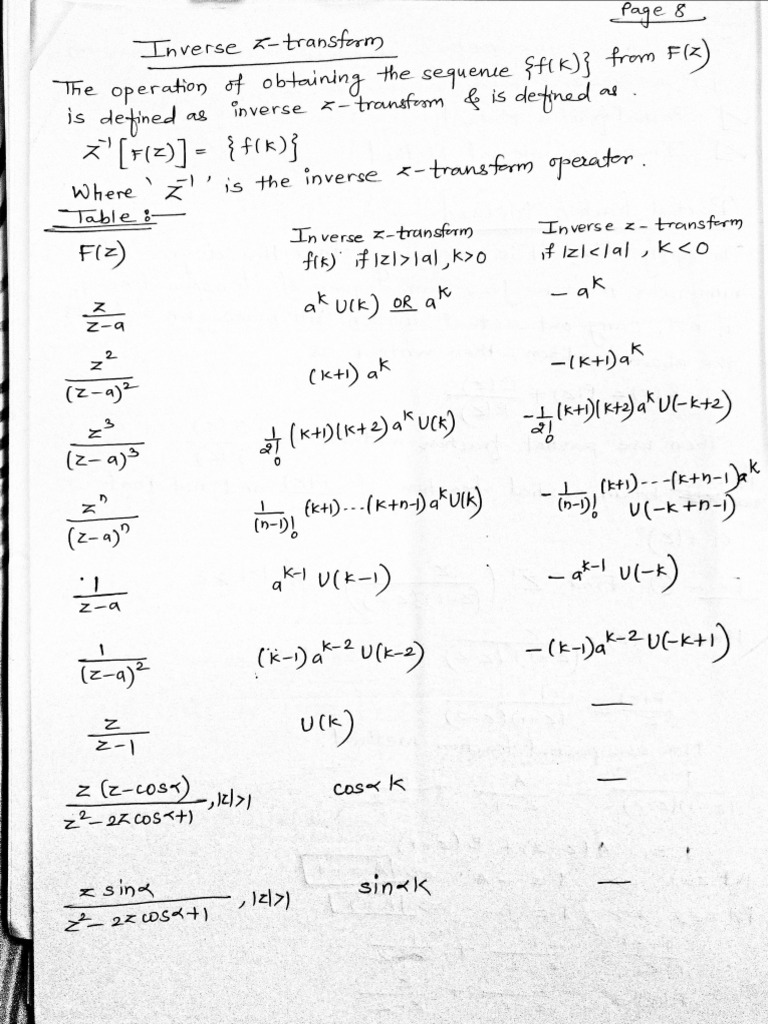 Page 8
Inverse z-transform
The operation of obtaining the sequence {f(k)} from F(z)
is defined as inverse z-transform & is defined as.
z⁻¹[F(z)] = {f(k)}
Where 'z⁻¹' is the inverse z-transform operator.
Table :—
F(z) Inverse z-transform f(k) if |z|>|a|, k>0 Inverse z-transform if |z|<|a|, k<0
z/(z-a) aᵏ U(k) OR aᵏ - aᵏ
z²/(z-a)² (k+1) aᵏ -(k+1)aᵏ
z³/(z-a)³ 1/2! (k+1)(k+2) aᵏ U(k) -1/2! (k+1)(k+2) aᵏ U(-k+2)
zⁿ/(z-a)ⁿ 1/(n-1)! (k+1)...(k+n-1) aᵏ U(k) -1/(n-1)! (k+1)---(k+n-1)aᵏ U(-k+n-1)
1/(z-a) aᵏ⁻¹ U(k-1) - aᵏ⁻¹ U(-k)
1/(z-a)² (k-1) aᵏ⁻² U(k-2) -(k-1)aᵏ⁻² U(-k+1)
z/(z-1) U(k) —
z(z-cosα)/(z²-2z cosα+1), |z|>1 cosα k —
z sinα/(z²-2z cosα+1), |z|>1 sinαk —